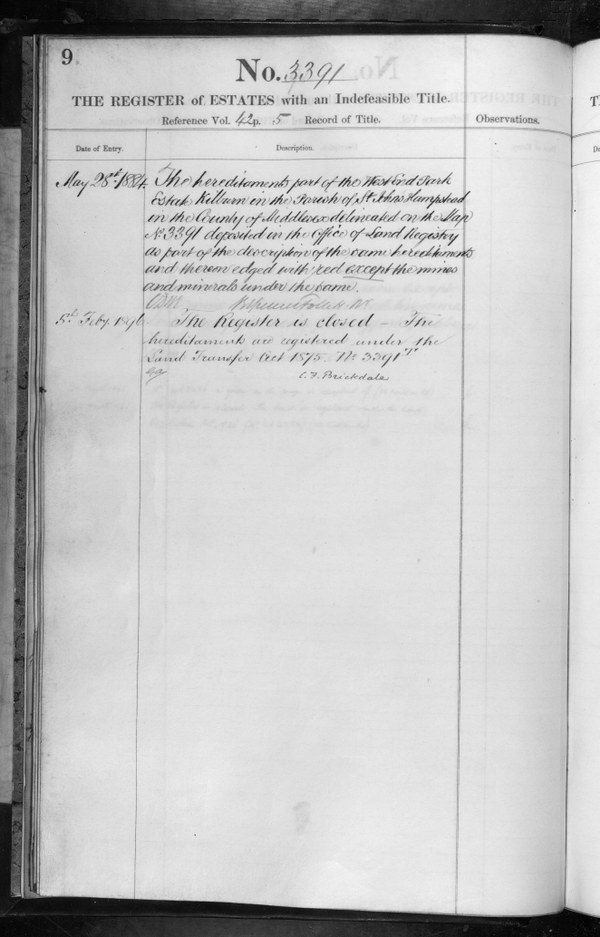 9
No. 3391
THE REGISTER of ESTATES with an Indefeasible Title.
Reference Vol. 42 p. 5 Record of Title.
Observations.
Date of Entry.
Description.
May 28th 1884. The hereditaments part of the West End Park
Estate Kilburn in the Parish of St Johns Hampstead
in the County of Middlesex delineated on the Map
No 3391 deposited in the Office of Land Registry
as part of the description of the same hereditaments
and thereon edged with red except the mines
and minerals under the same.
5th Feby. 1896 The Register is closed – The
hereditaments are registered under the
Land Transfer Act 1875. No 3391
C. F. Brickdale